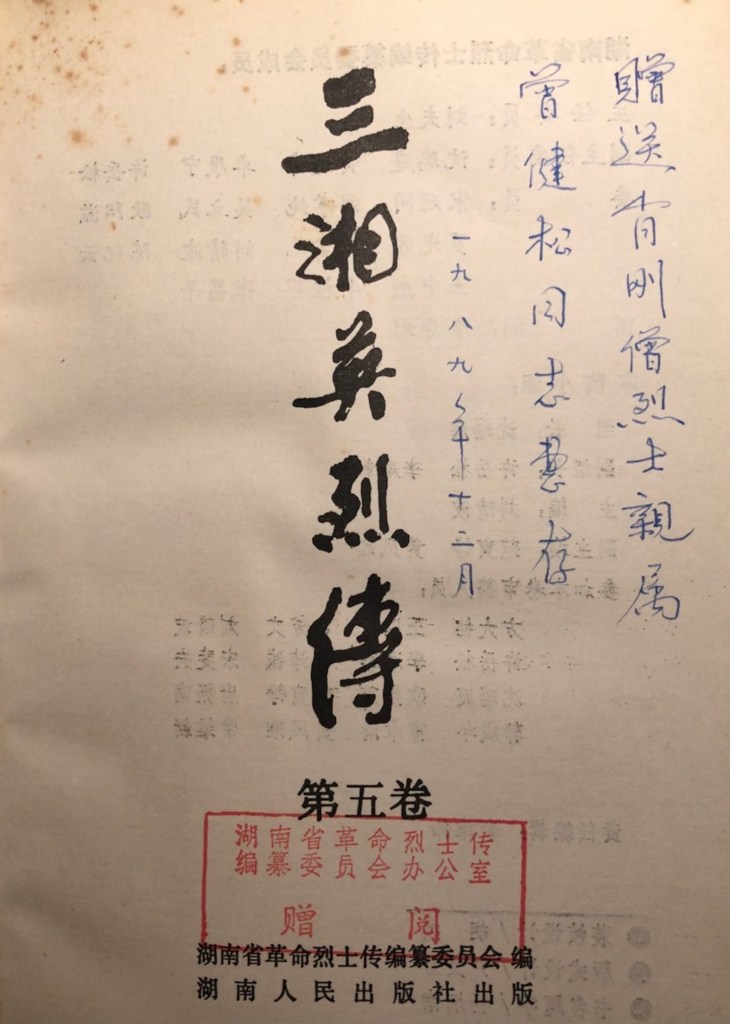 赠送肖刚僧烈士親属
曾健松同志惠存
一九八九年十二月
三湘英烈傳
第五卷
湖南省革命烈士传
编纂委员会办公室
赠 阅
湖南省革命烈士传编纂委员会 编
湖南人民出版社出版